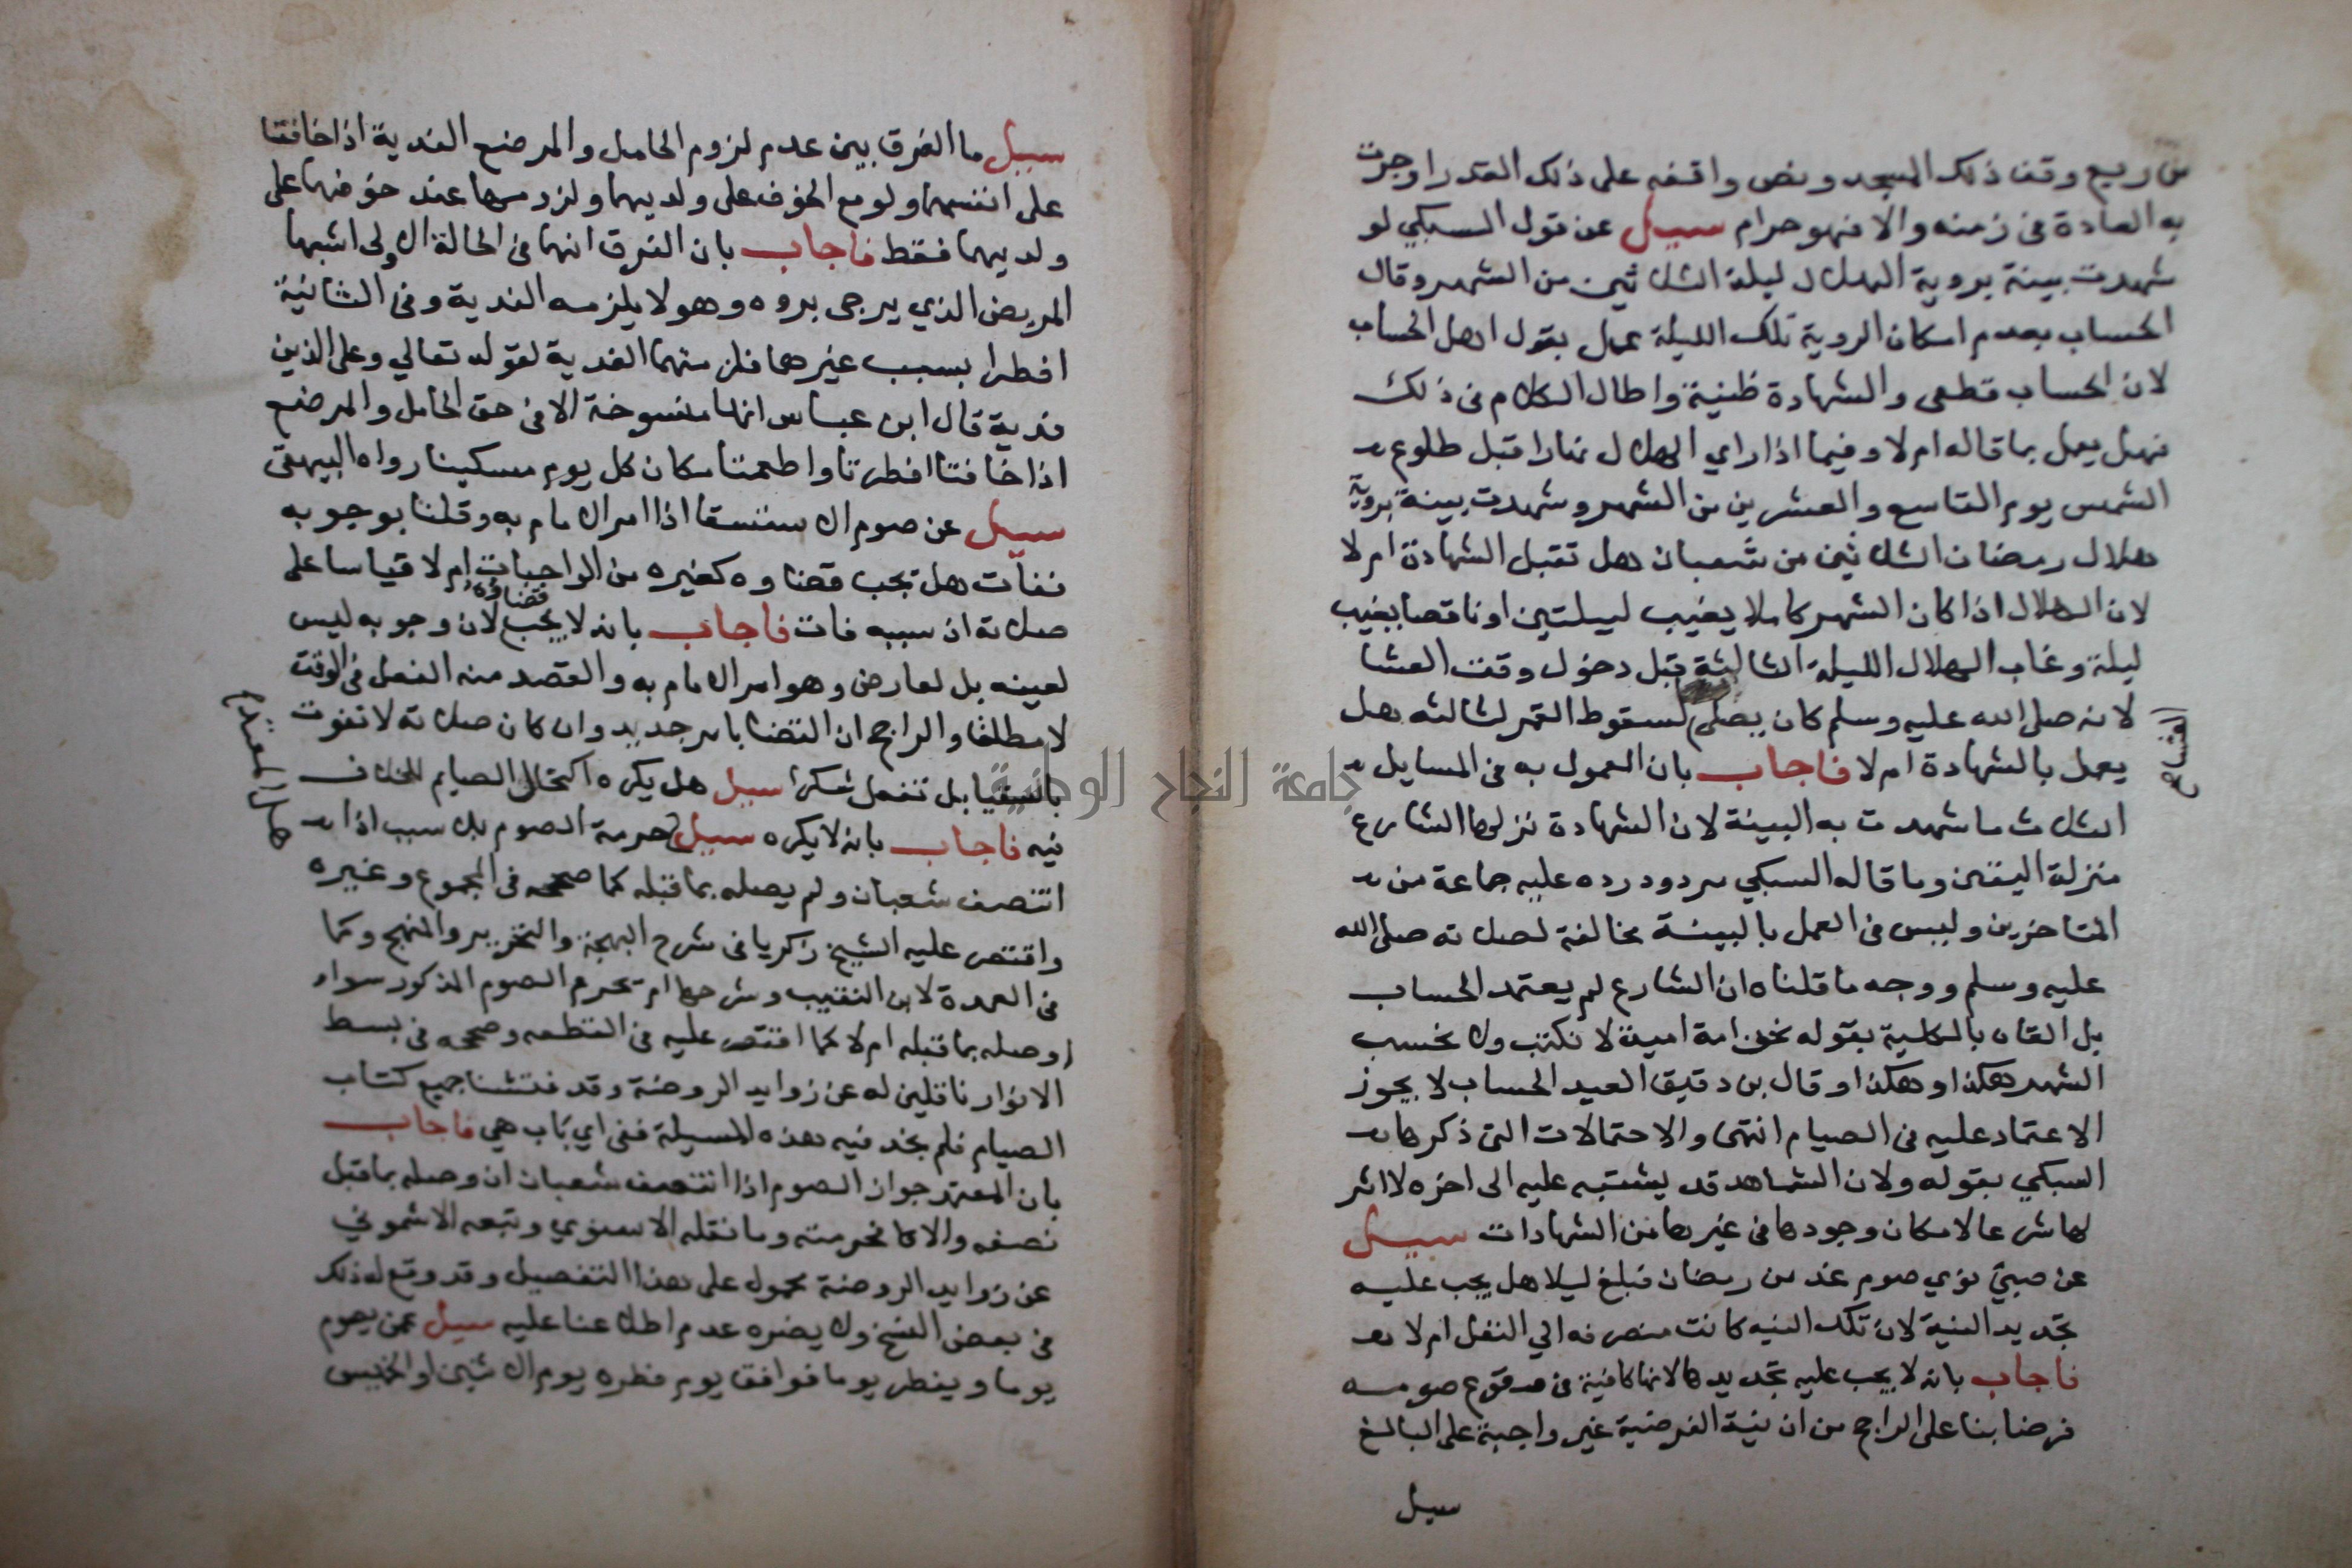 من ريع وقف ذلك المسجد ونص واقفه على ذلك القدر او جرت
به العادة فى زمنه والا فهو حرام سيل عن قول السبكي لو
شهدت بينة بروية الهلال ليلة الثلاثين من الشهر وقال
الحساب بعدم امكان الروية تلك الليلة عمل بقول اهل الحساب
لان الحساب قطعى والشهادة ظنية واطال الكلام فى ذلك
فهل يعمل بما قاله ام لا وفيما اذا راي الهلال نهارا قبل طلوع
الشمس يوم التاسع والعشرين من الشهر وشهدت بينة بروية
هلال رمضان الثلاثين من شعبان هل تقبل الشهادة ام لا
لان الهلال اذا كان الشهر كاملا يغيب ليلتين او ناقصا يغيب
ليلة وغاب الهلال الليلة الثالثة قبل دخول وقت العشا
لانه صلى الله عليه وسلم كان يصلى لسقوط القمر لثالثه هل
العشا صح
يعمل بالشهادة ام لا فاجاب بان المعمول به فى المسايل
الثلاث ما شهدت به البينة لان الشهادة نزلها الشارع
منزلة اليقين وما قاله السبكي مردود رده عليه جماعة من
المتاخرين وليس فى العمل بالبينة مخالفة لصلاته صلى الله
عليه وسلم ووجه ما قلناه ان الشارع لم يعتمد الحساب
بل الغاه بالكلية بقوله نحن امة امية لا نكتب ولا نحسب
الشهر هكذا وهكذا وقال بن دقيق العيد الحساب لا يجوز
الاعتماد عليه فى الصيام انتهى والاحتمالات التى ذكرها
السبكي بقوله ولان الشاهد قد يشتبه عليه الى اخره لا اثر
لها شرعا لامكان وجودها فى غيرها من الشهادات سيل
عن صبي نوي صوم غد من رمضان فبلغ ليلا هل يجب عليه
تجديد النية لان تلك النيه كانت منصرفه الي النفل ام لا
فاجاب بانه لا يجب عليه تجديدها لانها كافية فى وقوع صومه
فرضا بنا على الراجح من ان نية الفرضية غير واجبة على البالغ
سيل
سيل ما الفرق بين عدم لزوم الحامل والمرضع الفدية اذا خافتا
على انفسهما ولو مع الخوف على ولديهما ولزومها عند خوفهما على
ولديهما فقط فاجاب بان الفرق انهما فى الحالة الاولى اشبها
المريض الذي يرجى بروه وهو لا يلزمه الفدية وفى الثانية
افطرا بسبب غيرهما فلزمتهما الفدية لقوله تعالي وعلى الذين
فدية قال ابن عباس انها منسوخة الا فى حق الحامل والمرضع
اذا خافتا افطرتا واطعمتا مكان كل يوم مسكينا رواه البيهقى
سيل عن صوم الاستسقا اذا امر الامام به وقلنا بوجوبه
ففات هل تجب قضاوه كغيره من الواجبات ام لا قياسا على
صلاته ان سببه فات فاجاب بانه لا يجب قضاوه لان وجوبه ليس
لعينه بل لعارض وهو امر الامام به والقصد منه الفعل فى الوقت
لا مطلقا والراجح ان القضا بامر جديد وان كان صلاته لا تفوت
بالسقيا بل تفعل شكرا سيل هل يكره اكتحال الصايم للخلاف
فيه فاجاب بانه لا يكره سيل حرمة الصوم بلا سبب اذا
هل المعتمد
انتصف شعبان ولم يصله بما قبله كما صححه فى المجموع وغيره
واقتصر عليه الشيخ زكريا فى شرح البهجة والتحرير والمنهج وكما
فى العمدة لابن النقيب وشرحها ام تحرم الصوم المذكور سواء
اوصله بما قبله ام لا كما اقتصر عليه فى القطعه وصححه فى بسط
الانوار ناقلين له عن زوايد الروضة وقد فتشنا جميع كتاب
الصيام فلم نجد فيه هذه المسيلة ففى اي باب هي فاجاب
بان المعتمد جواز الصوم اذا انتصف شعبان ان وصله بما قبل
نصفه والا فالحرمته وما نقله الاسنوي وتبعه الاشمونى
عن زوايد الروضة محمول على هذا التفصيل وقد وقع له ذلك
فى بعض النسخ ولا يضره عدم اطلاعنا عليه سيل عمن يصوم
يوما ويفطر يوما فوافق يوم فطره يوم الاثنين او الخميس
جامعة النجاح الوطنية